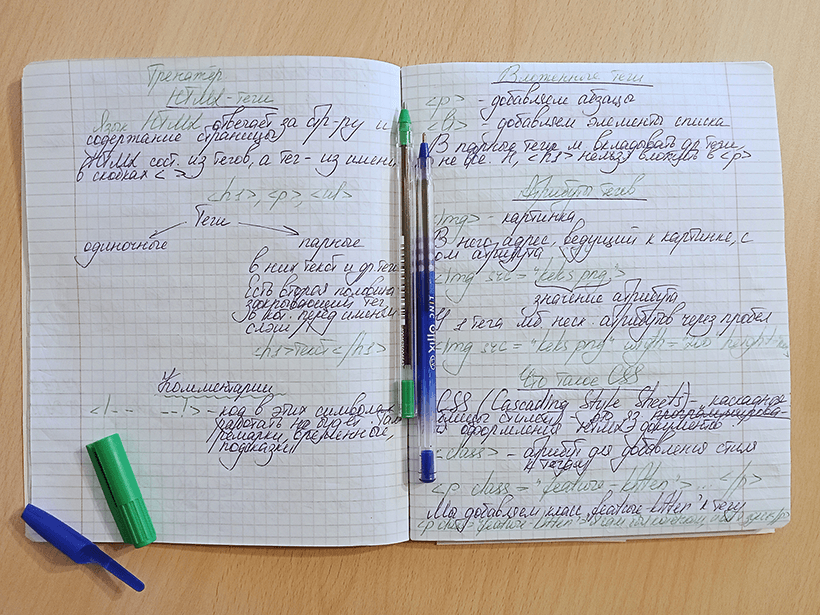 Тренажёр
HTML-теги
Язык HTML отвечает за стр-ру и
содержание страницы
HTML сост. из тегов, а тег - из имени
в скобках < >
<h1>, <p>, <ul>
Теги
одиночные парные
в них текст и др. теги
Есть вторая половина
закрывающий тег
В кот. перед именем
слэш /
<h1>текст</h1>
Комментарии
<!-- --!> - код в этих символах
работать не будет. Там
ремарки, временные,
подсказки
Вложенные теги
<p> - добавляем абзацы
- добавляем элементы списка
В парные теги м. вкладывать др. теги,
но не все. Н, <h1> нельзя вложить в <p>
Атрибуты тегов
<img> - картинка
В него адрес, ведущий к картинке, с
атрибута
<img src = "keks.png">
значение атрибута
У 1 тега мб неск. атрибутов через пробел
<img src = "keks.png" height
Что такое CSS
CSS (Cascading Style Sheets) - каскадные
стилей - это яз.
оформления HTML документов
<class> - атрибут для добавления стиля
к тегам
<p class = "feature-kitten"> ... </p>
Мы добавляем класс "feature-kitten" к тегу
<p class = "feature-kitten">
LINC Offix